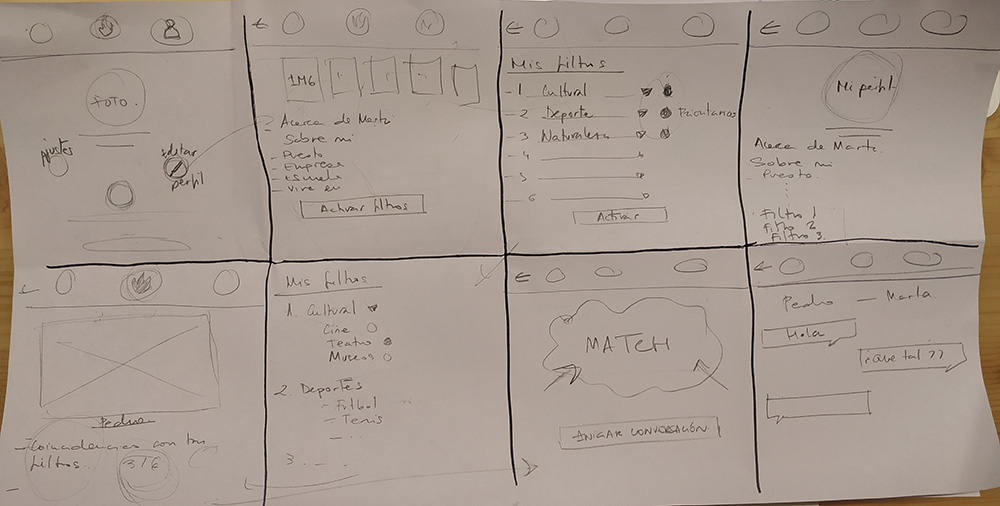 FOTO
Ajustes
Editar
perfil
1M6
- Acerca de Marta
Sobre mi
- Puesto
- Empresa
- Escuela
- Vive en
Activar filtros
Mis filtros
- 1 Cultural
- 2 Deporte Priorizamos
- 3 Naturaleza
- 4
- 5
- 6
Activar
Mi perfil
Acerca de Marta.
Sobre mi
- Puesto
Filtro 1
Filtro 2
Filtro 3
Pedro
- Coincidencias con tus
filtros.
3/6
Mis filtros
1. Cultural
Cine
Teatro
Museos
2. Deportes
- Fútbol
- Tenis
- ...
3. ....
MATCH
INICIAR CONVERSACIÓN
Pedro — Marta
Hola
¿Que tal ??